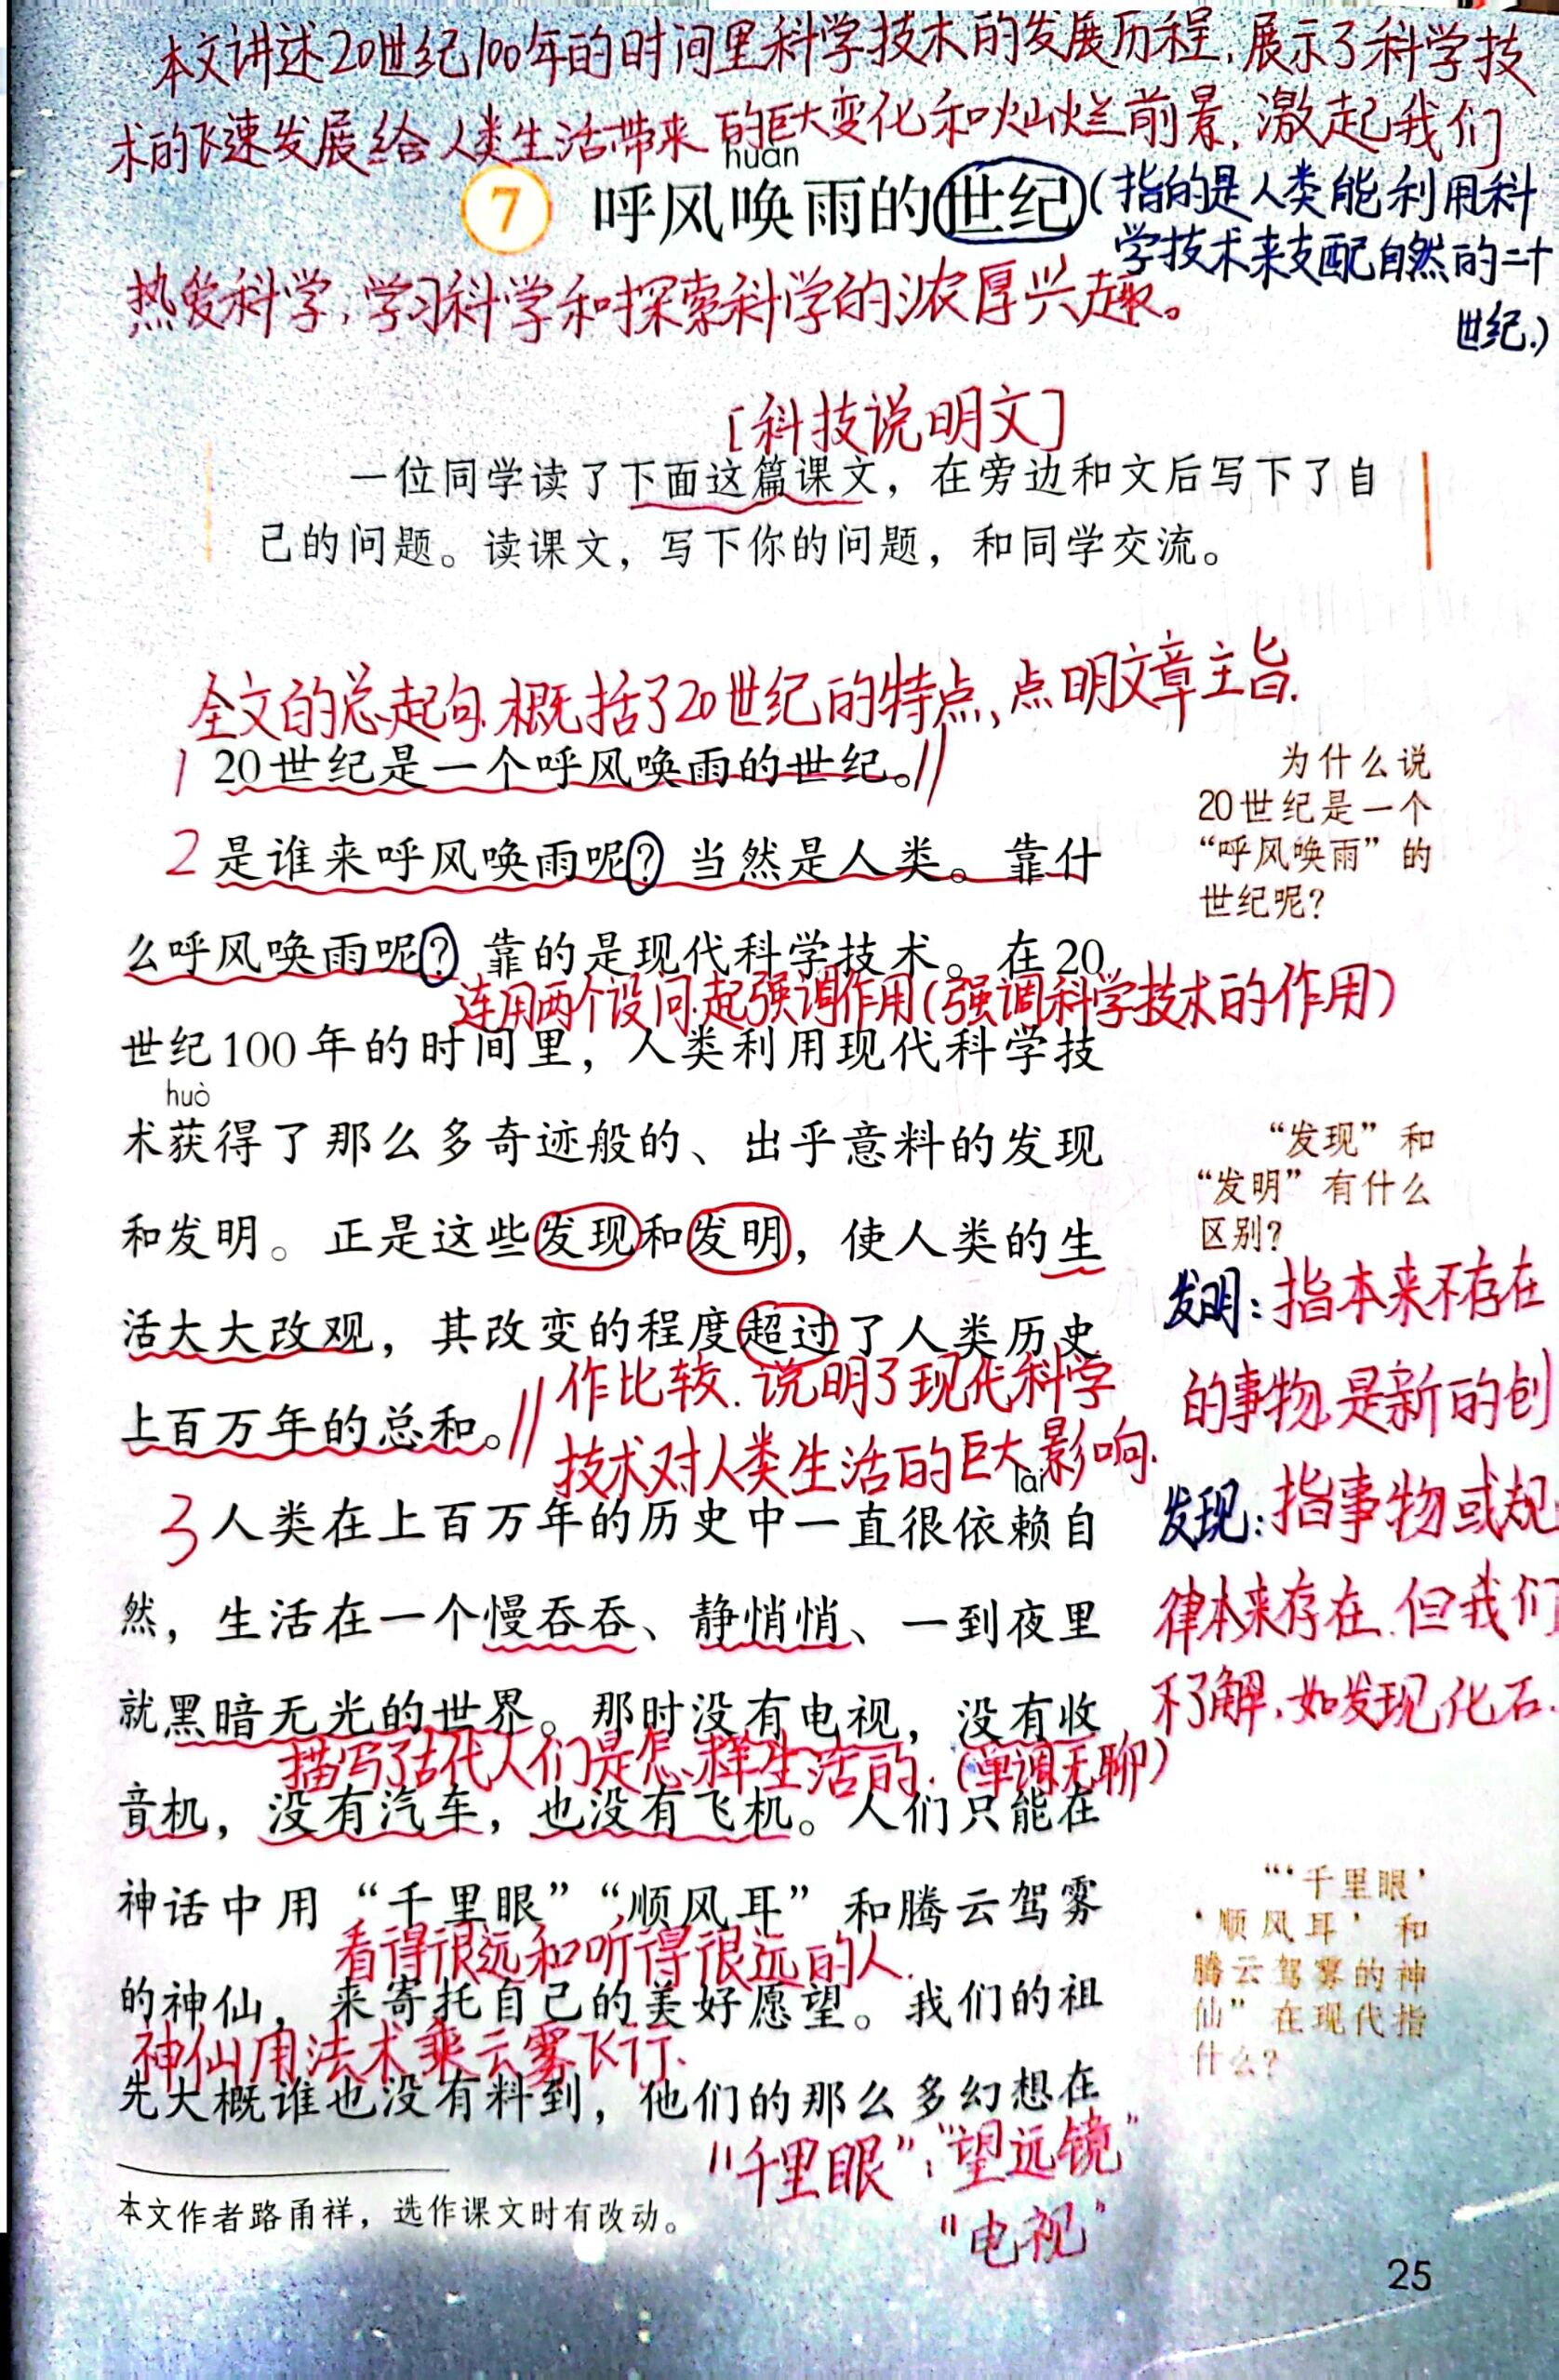 本文讲述20世纪100年的时间里科学技术的发展历程,展示了科学技
术的飞速发展给人类生活带来的巨大变化和灿烂前景,激起我们
huàn
7 呼风唤雨的世纪(指的是人类能利用科
学技术来支配自然的二十
世纪.)
热爱科学,学习科学和探索科学的浓厚兴趣。
[科技说明文]
一位同学读了下面这篇课文，在旁边和文后写下了自
己的问题。读课文，写下你的问题，和同学交流。
全文的总起句.概括了20世纪的特点,点明文章主旨.
1 20世纪是一个呼风唤雨的世纪。//
为什么说
20世纪是一个
“呼风唤雨”的
世纪呢？
2 是谁来呼风唤雨呢？当然是人类。靠什
么呼风唤雨呢？靠的是现代科学技术。在20
连用两个设问.起强调作用(强调科学技术的作用)
世纪100年的时间里，人类利用现代科学技
huò
术获得了那么多奇迹般的、出乎意料的发现
和发明。正是这些发现和发明，使人类的生
活大大改观，其改变的程度超过了人类历史
上百万年的总和。//
作比较.说明了现代科学
技术对人类生活的巨大影响.
“发现”和
“发明”有什么
区别？
发明:指本来不存在
的事物.是新的创
发现:指事物或规
律本来存在.但我们
不了解.如发现化石.
lài
3 人类在上百万年的历史中一直很依赖自
然，生活在一个慢吞吞、静悄悄、一到夜里
就黑暗无光的世界。那时没有电视，没有收
描写了古代人们是怎样生活的.(单调无聊)
音机，没有汽车，也没有飞机。人们只能在
神话中用“千里眼”“顺风耳”和腾云驾雾
看得很远和听得很远的人.
的神仙，来寄托自己的美好愿望。我们的祖
神仙用法术乘云雾飞行.
先大概谁也没有料到，他们的那么多幻想在
“‘千里眼’
‘顺风耳’和
腾云驾雾的神
仙”在现代指
什么？
"千里眼":"望远镜"
"电视"
本文作者路甬祥，选作课文时有改动。
25